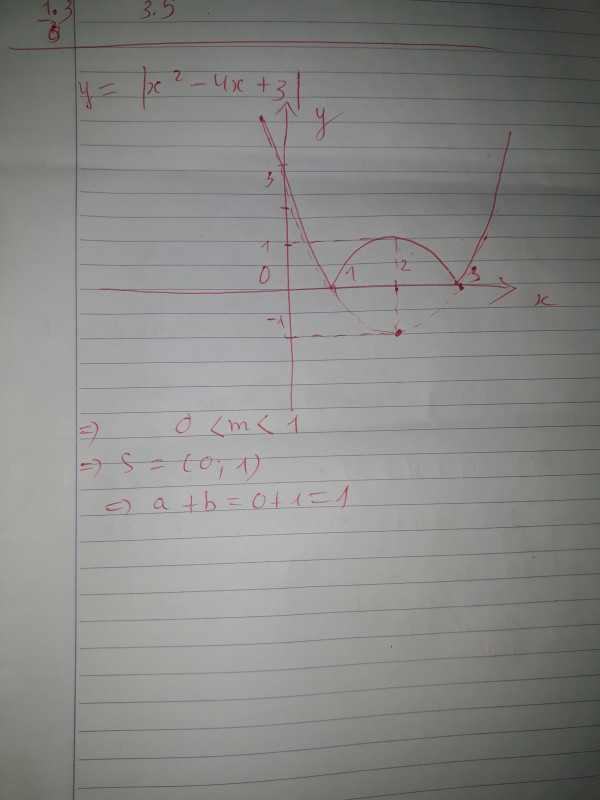 1.3 3.5
8
y = |x² - 4x + 3|
y
3
1
0 1 2 3
x
-1
=> 0 < m < 1
=> S = (0; 1)
=> a + b = 0 + 1 = 1